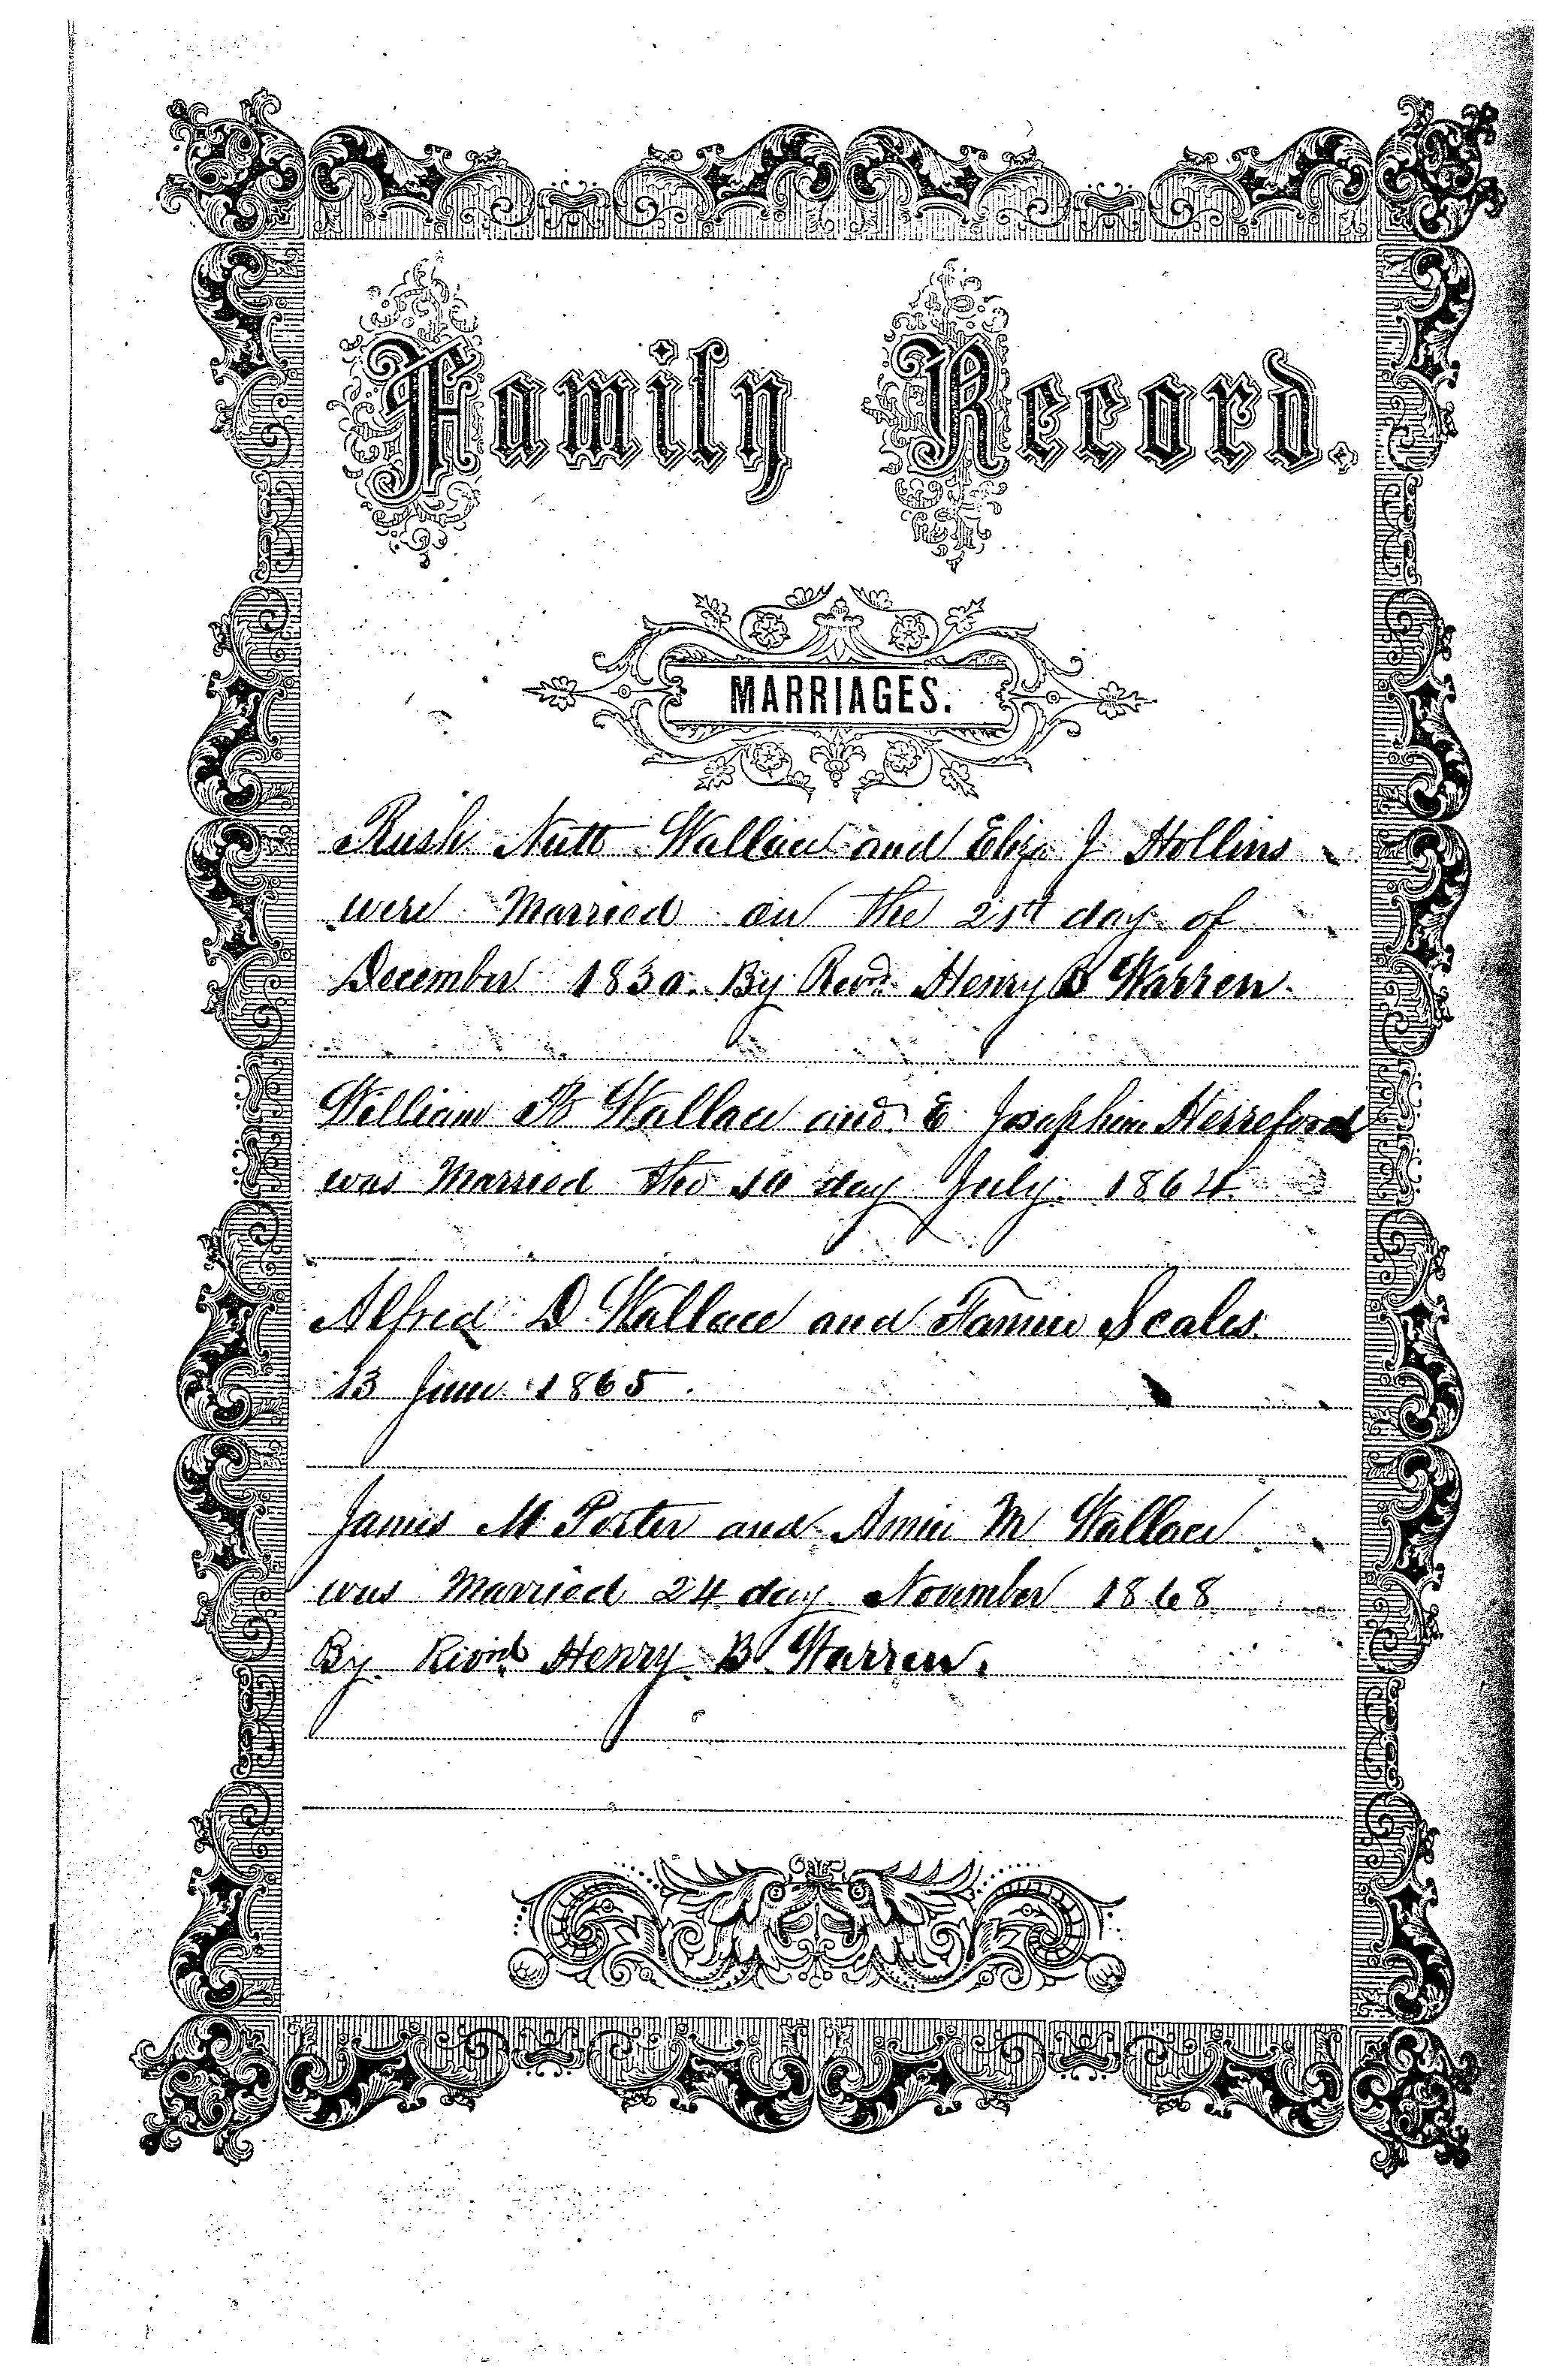 Family Record.
MARRIAGES.
Rush Nutt Wallace and Eliza J Hollins
were Married on the 21st day of
December 1830. By Revd. Henry B Warren.
William B Wallace and E Josephine Herreford
was Married the 10 day July. 1864.
Alfred D. Wallace and Fannie Scales.
13 June 1865.
James M Porter and Annie M Wallace
was Married 24 day November 1868
By Revnd Henry B. Warren.